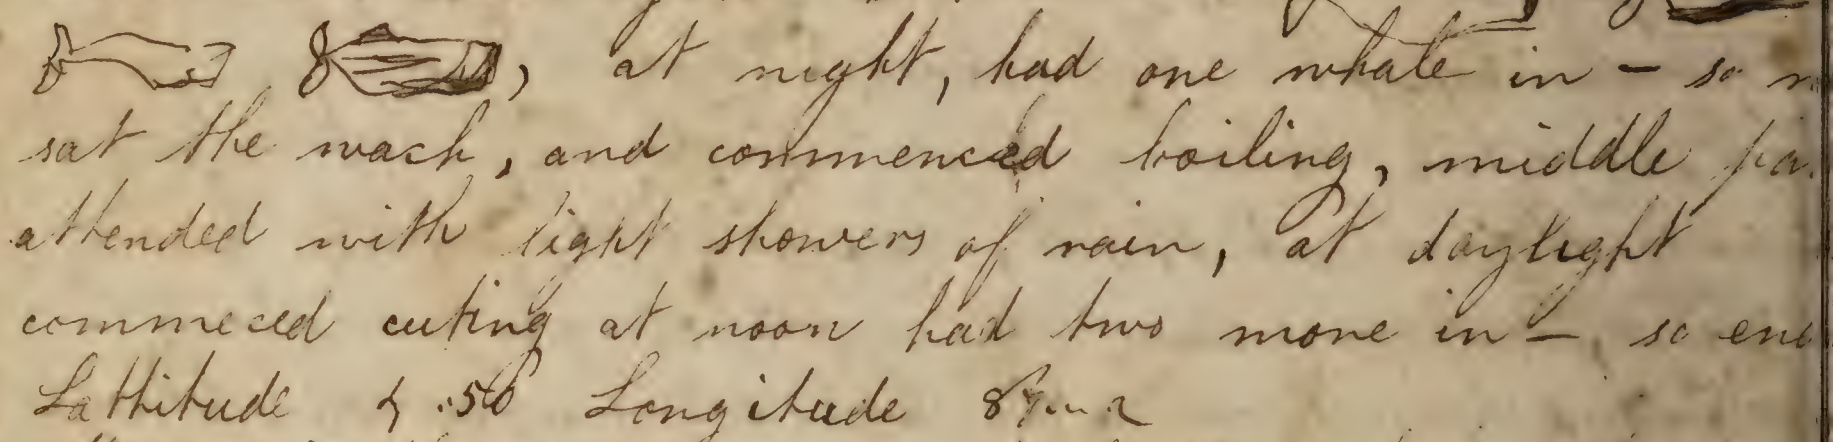 , at night, had one whale in - so
sat the wach, and commenced boiling, middle
attended with light showers of rain, at daylight
commeced cuting at noon had two more in - so
Lattitude .50 Longitude